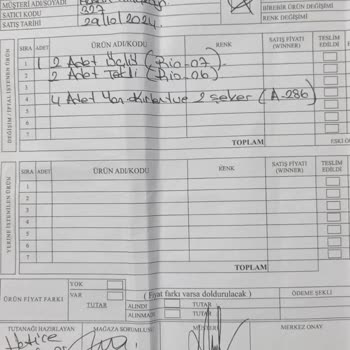 MÜŞTERİ ADI/SOYADI
SATICI KODU 327
SATIŞ TARİHİ 29/10/2024
BİREBİR ÜRÜN DEĞİŞİMİ
RENK DEĞİŞİMİ
DEĞİŞİM / İPTAL İSTENEN ÜRÜN
SIRA ADET ÜRÜN ADI/KODU RENK SATIŞ FİYATI (WINNER) TESLİM EDİLDİ
1 2 Adet Üçlü (Bio-07)
2 2 Adet Tekli (Bio-06)
3
4 4 Adet Yan Kırlent ve 2 şeker (A-286)
5
6
7
TOPLAM
YERİNE İSTENİLEN ÜRÜN
SIRA ADET ÜRÜN ADI/KODU RENK SATIŞ FİYATI (WINNER) TESLİM EDİLDİ
1
2
3
4
5
6
7
TOPLAM
ÜRÜN FİYAT FARKI
YOK
VAR
( Fiyat farkı varsa doldurulacak )
ÖDEME ŞEKLİ
TUTAR
ALINDI
TUTAR
ALINMADI
TUTAR
TUTANAĞI HAZIRLAYAN
MAĞAZA SORUMLUSU
MÜŞTERİ
MERKEZ ONAY
Hatice